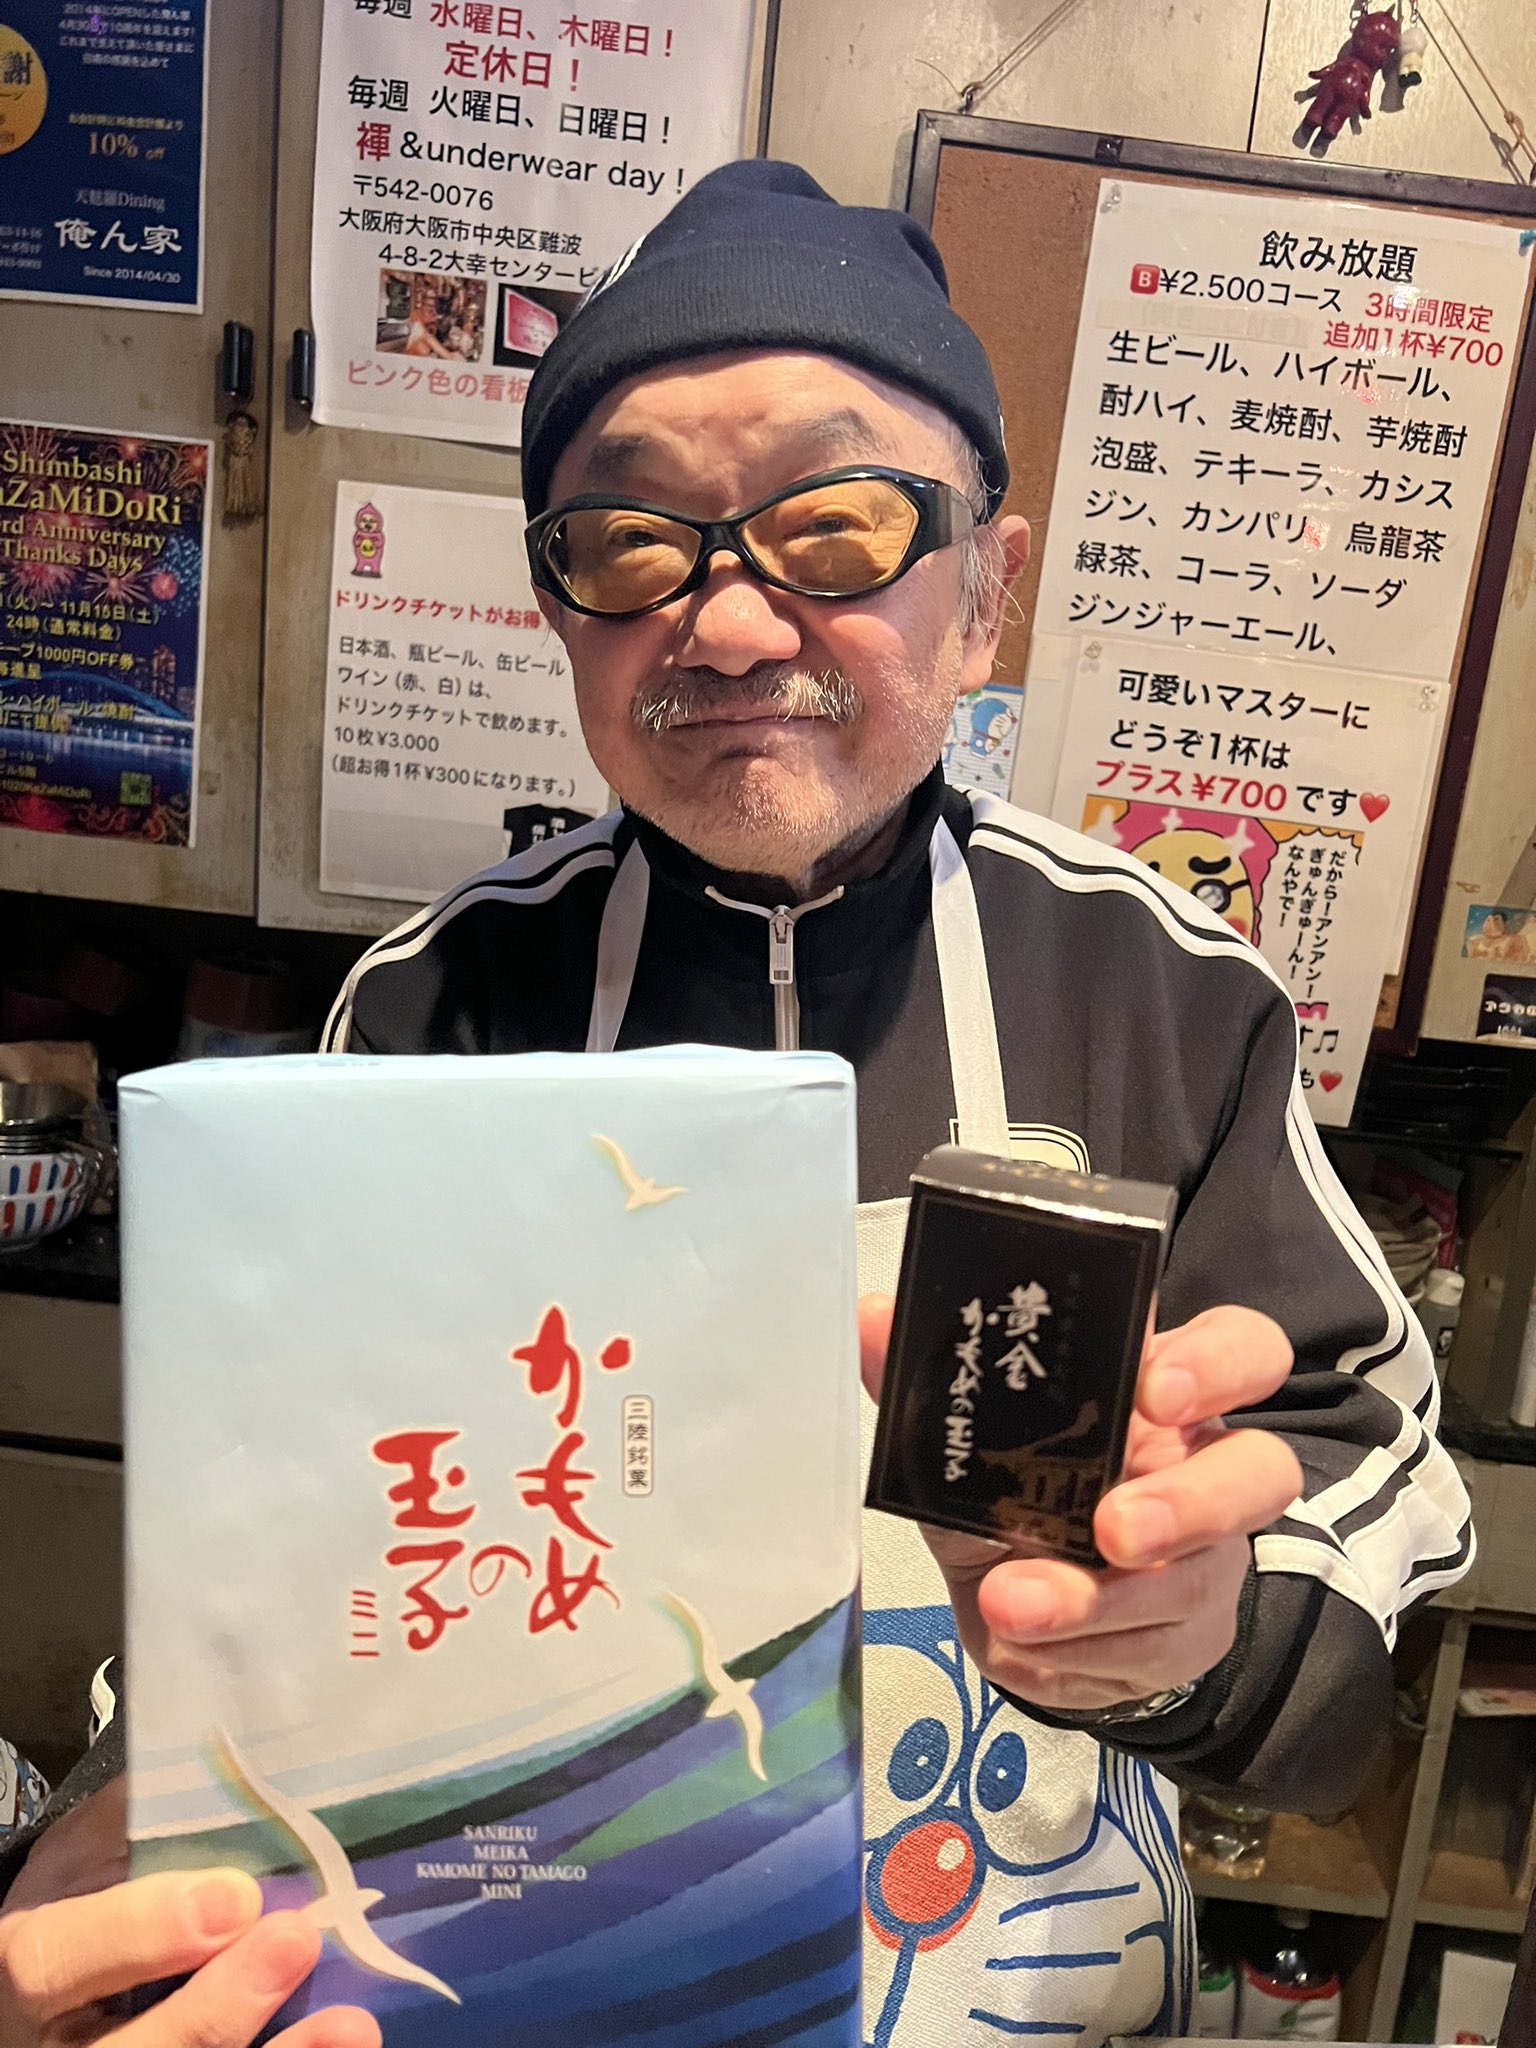 2014年にOPENした俺ん家
4月30日で10周年を迎えます!
これまで支えて頂いた皆さまに
10% off
天麩羅Dining
俺ん家
Since 2014/04/30
毎週 水曜日、木曜日！
定休日！
毎週 火曜日、日曜日！
褌＆underwear day！
〒542-0076
大阪府大阪市中央区難波
4-8-2大幸センタービ
ピンク色の看板
Shimbashi
aZaMiDoRi
rd Anniversary
Thanks Days
(火)〜11月15日(土)
24時(通常料金)
1000円OFF券
ドリンクチケットがお得
日本酒、瓶ビール、缶ビール
ワイン(赤、白)は、
ドリンクチケットで飲めます。
10枚¥3.000
(超お得1杯¥300になります。)
飲み放題
B¥2.500コース 3時間限定
追加1杯¥700
生ビール、ハイボール、
酎ハイ、麦焼酎、芋焼酎
泡盛、テキーラ、カシス
ジン、カンパリ 烏龍茶
緑茶、コーラ、ソーダ
ジンジャーエール、
可愛いマスターに
どうぞ1杯は
プラス¥700です♥
だから！アンアン！
ぎゅんぎゅーん！
なんやで！
す♫
も♥
三陸銘菓
かもめの
玉子
ミニ
SANRIKU
MEIKA
KAMOME NO TAMAGO
MINI
黄金
かもめの玉子